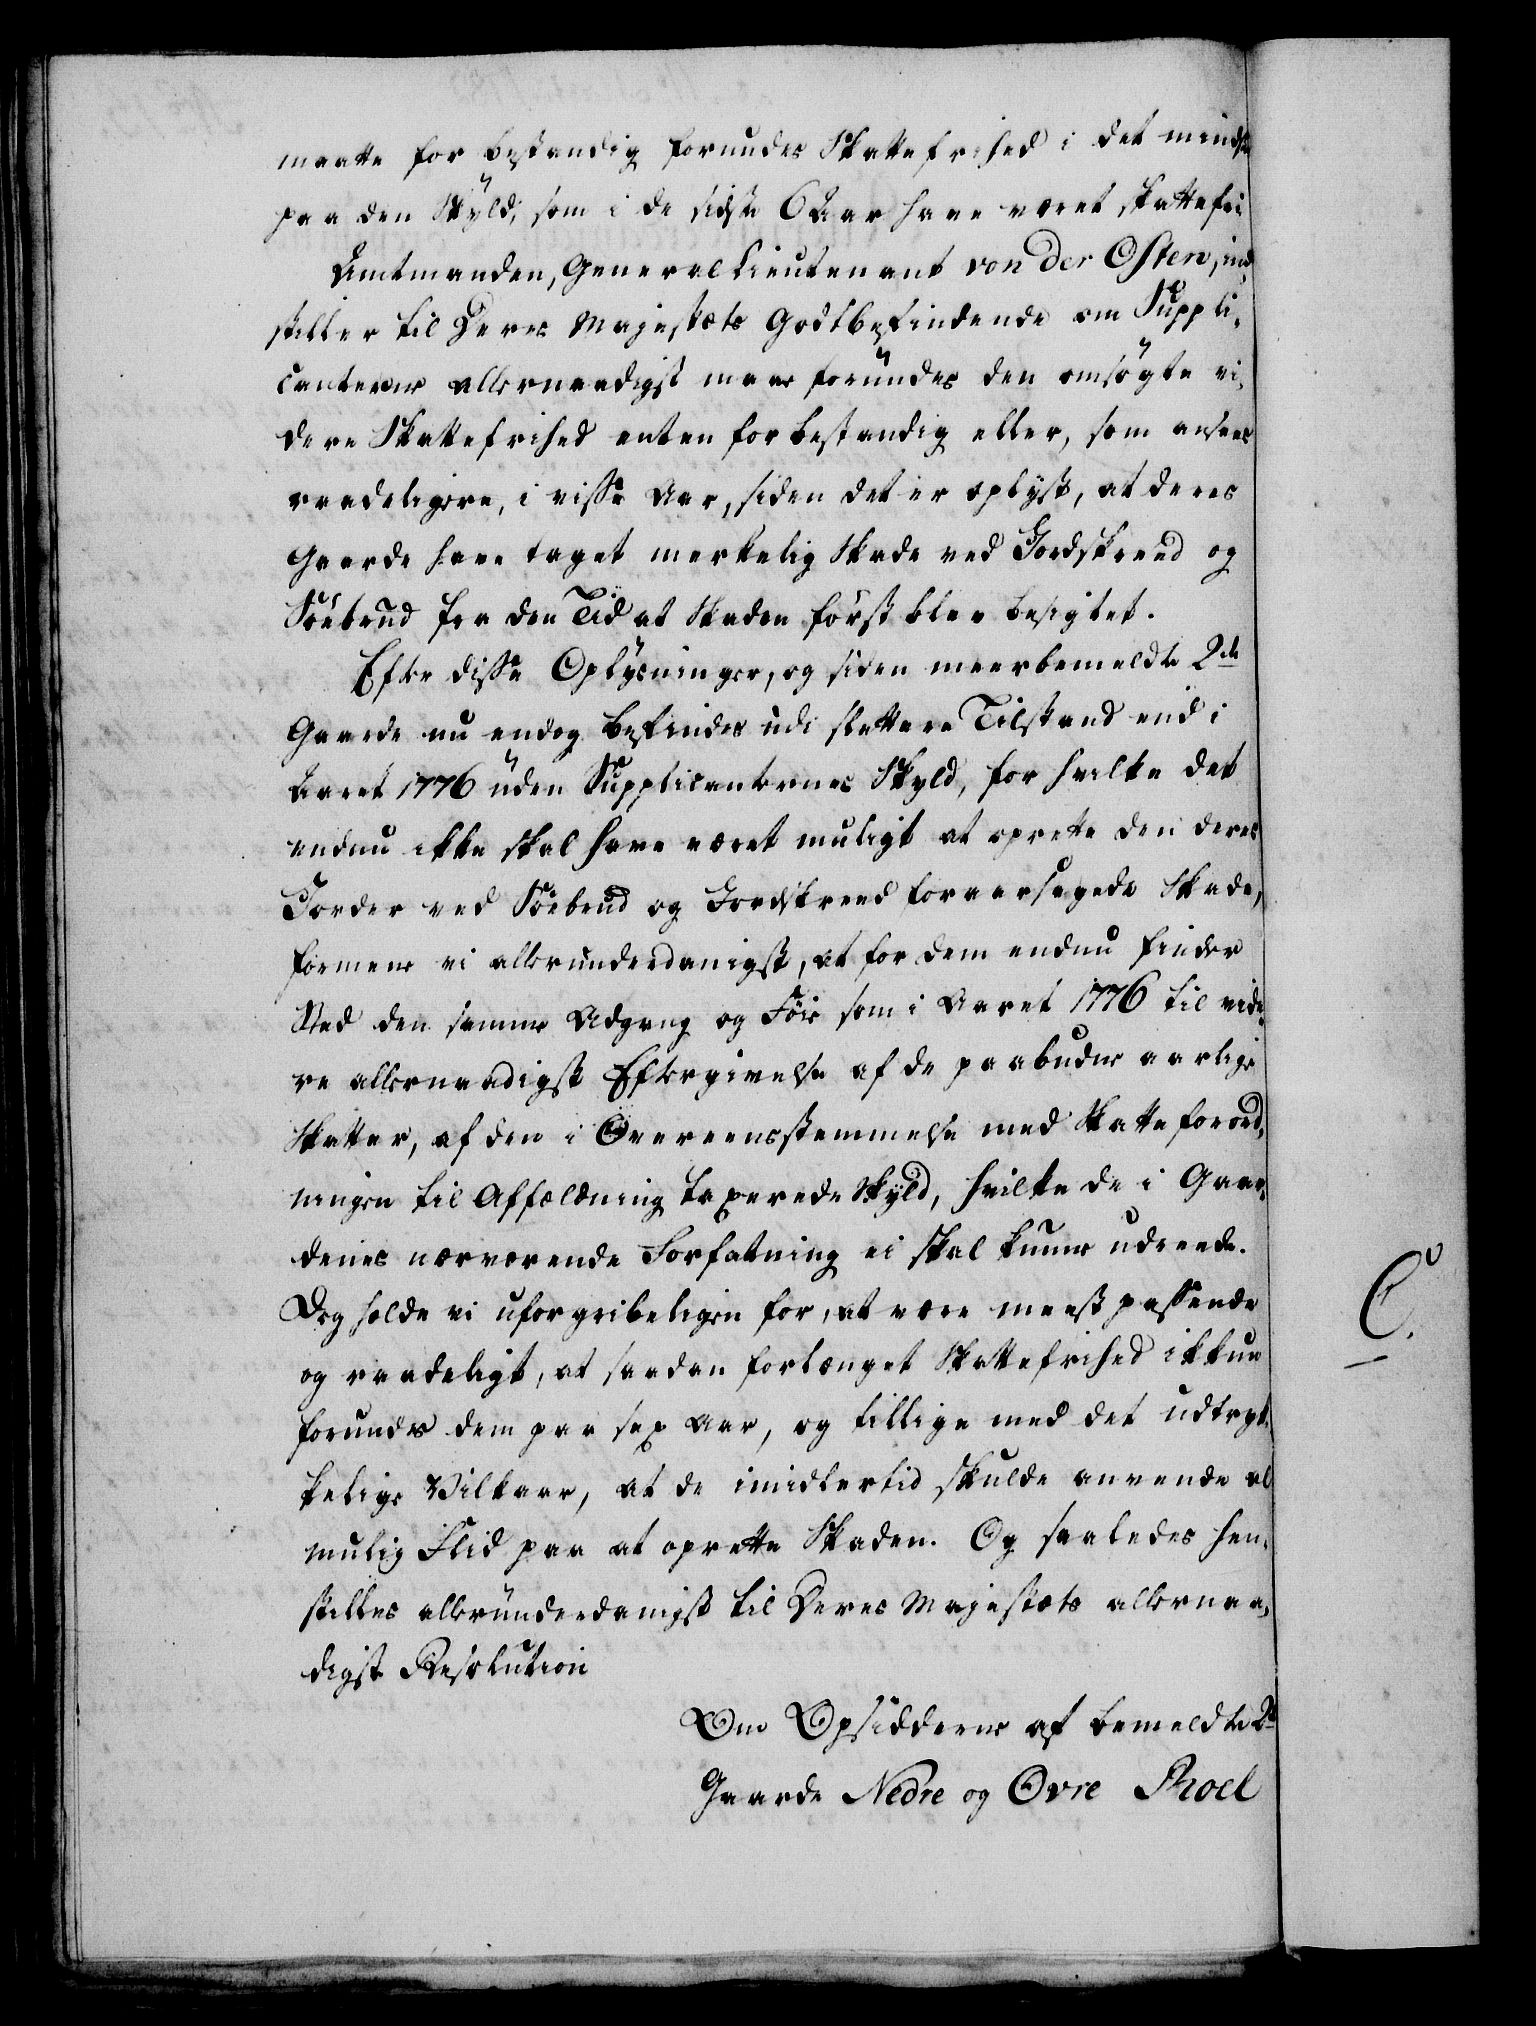 maatte for bestandig forundes Skattefrihed i det mindste
paa den Skyld, som i de sidste 6 Aar have været skattefri
Amtmanden, General Lieutenant von der Osten, ind-
stiller til Deres Majestæts Godtbefindende om Suppli-
canterne allernaadigst maae forundes den omsögte vi-
dere Skattefrihed enten for bestandig eller, som ansees
raadeligere, i visse Aar, siden det er oplyst, at deres
Gaarde have taget merkelig Skade ved Jordskreed og
Söebrud fra den Tid at Skaden först blev besigtet.
Efter disse Oplysninger, og siden meerbemeldte 2de
Gaarde nu endog befindes udi slettere Tilstand end i
Aaret 1776 uden Supplicanternes Skyld, for hvilke det
endnu ikke skal have været muligt at oprette den deres
Jorder ved Söebrud og Jordskreed foraarsagede Skade,
formene vi allerunderdanigst, at for dem endnu finder
Sted den samme Adgang og Föie som i Aaret 1776 til vide-
re allernaadigst Eftergivelse af de paabudne aarlige
Skatter, af den i Overeensstemmelse med Skatteforord-
ningen til Affældning taxerede Skyld, hvilke de i Gaar-
denes nærværende Forfatning ei skal kunne udreede.
Dog holde vi uforgribeligen for, at være meest passende
og raadeligt, at saadan forlænget Skattefrihed ikkun
forundes dem paa sex Aar, og tillige med det udtryk-
kelige Vilkaar, at de imidlertid skulde anvende al
mulig Flid paa at oprette Skaden. Og saaledes hen-
stilles allerunderdanigst til Deres Majestæts allernaa-
digste Resolution
Om Opsidderne af bemeldte 2de
Gaarde Nedre og Övre Roel
C.